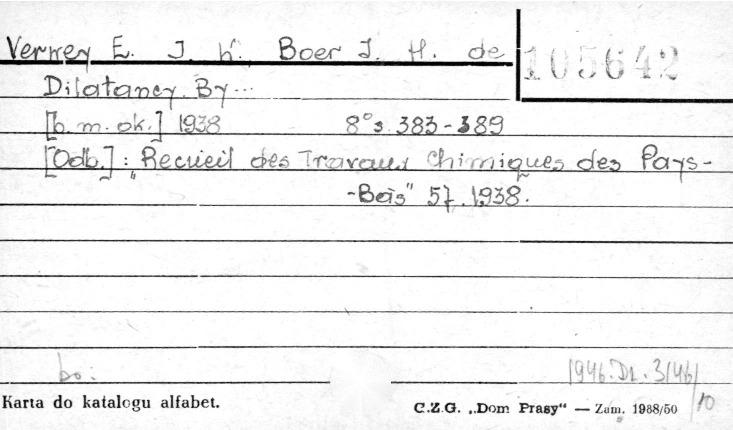 Verwey E. J. W. Boer J. H. de
105642
Dilatancy. By...
[b. m. ok.] 1938 8° s. 383-389
[Odb.] : "Recueil des Travaux Chimiques des Pays-
-Bas" 57. 1938.
bo.
1946. Dr. 3/46/
10
Karta do katalogu alfabet.
C.Z.G. „Dom Prasy“ — Zam. 1988/50